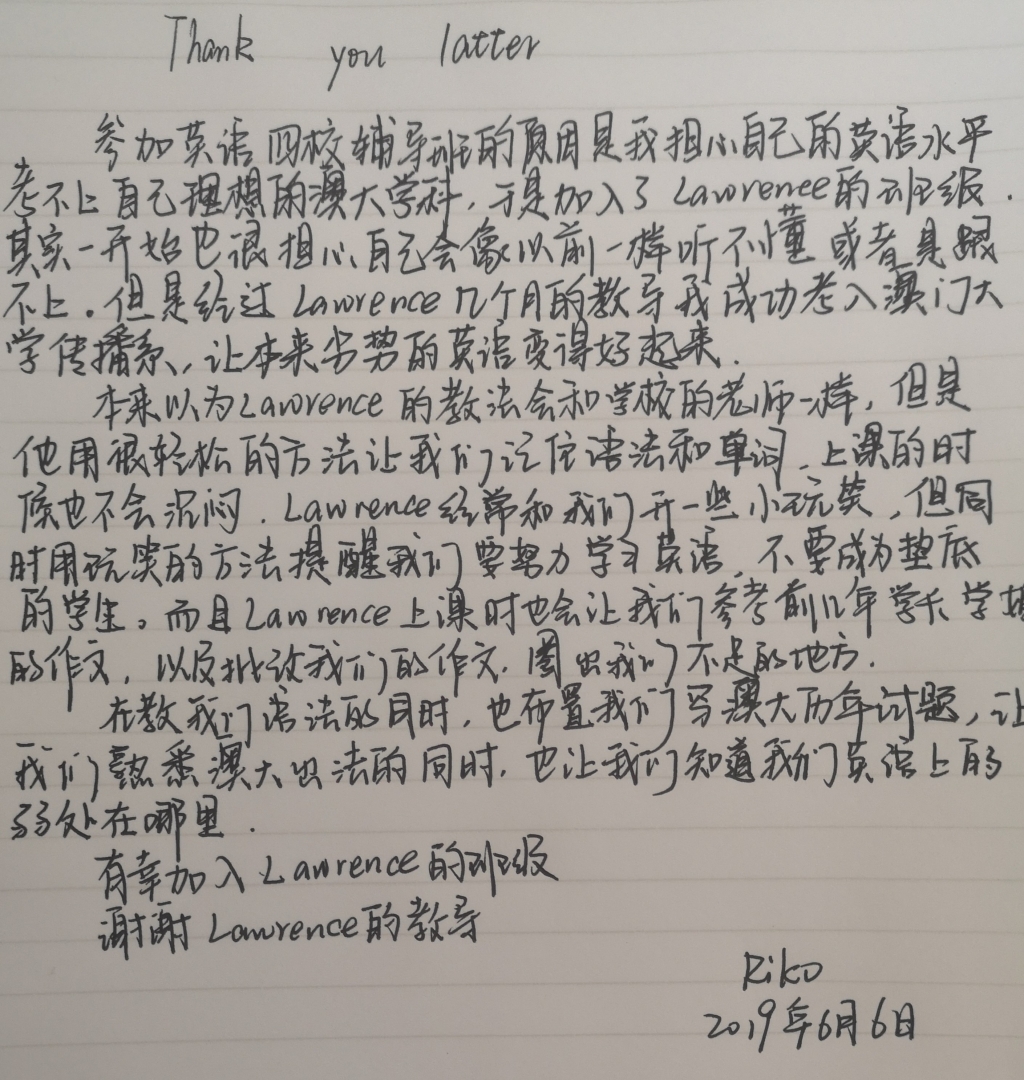 Thank you latter
参加英语四校辅导班的原因是我担心自己的英语水平
考不上自己理想的澳大学科，于是加入了Lawrence的班级.
其实一开始也很担心自己会像以前一样听不懂或者是跟
不上。但是经过Lawrence几个月的教导我成功考入澳门大
学传播系，让本来劣势的英语变得好起来.
本来以为Lawrence的教法会和学校的老师一样，但是
他用很轻松的方法让我们记住语法和单词，上课的时
候也不会沉闷.Lawrence经常和我们开一些小玩笑，但同
时用玩笑的方法提醒我们要努力学习英语，不要成为垫底
的学生。而且Lawrence上课时也会让我们参考前几年学长学姐
的作文，以及批改我们的作文.圈出我们不足的地方.
在教我们语法的同时，也布置我们写澳大历年试题，让
我们熟悉澳大出法的同时.也让我们知道我们英语上的
弱处在哪里.
有幸加入Lawrence的班级
谢谢Lawrence的教导
Riko
2019年6月6日